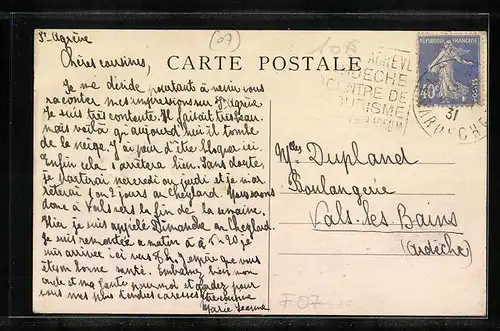 St-Agrève
(07)
CARTE POSTALE
Chères cousines,
Je me décide pourtant à venir vous
raconter mes impressions sur St Agrève
Je suis très contente. Il faisait très beau.
mais voilà qu'aujourd'hui il tombe
de la neige. J'ai peur d'être bloquée ici.
Enfin cela s'arrêtera bien. Sans doute,
je partirai mercredi ou jeudi et je m'ar
rêterai 1 ou 2 jours au Cheylard.
donc à Vals vers la fin de la semaine.
Hier je suis Dimanche au Cheylard.
Je suis remontée ce matin à
suis arrivée ici vers J'espère que vous
êtes en bonne santé. Embrassez bien mon
oncle et ma tante pour moi et gardez pour
vous mes plus tendres caresses
Marie Jeanne
AGREVE
ARDECHE
CENTRE DE
TOURISME
REPUBLIQUE FRANÇAISE
40c
POSTES
31
ARDECHE
Mlles Dupland
Boulangerie
Vals-les-Bains
(Ardèche)
F07